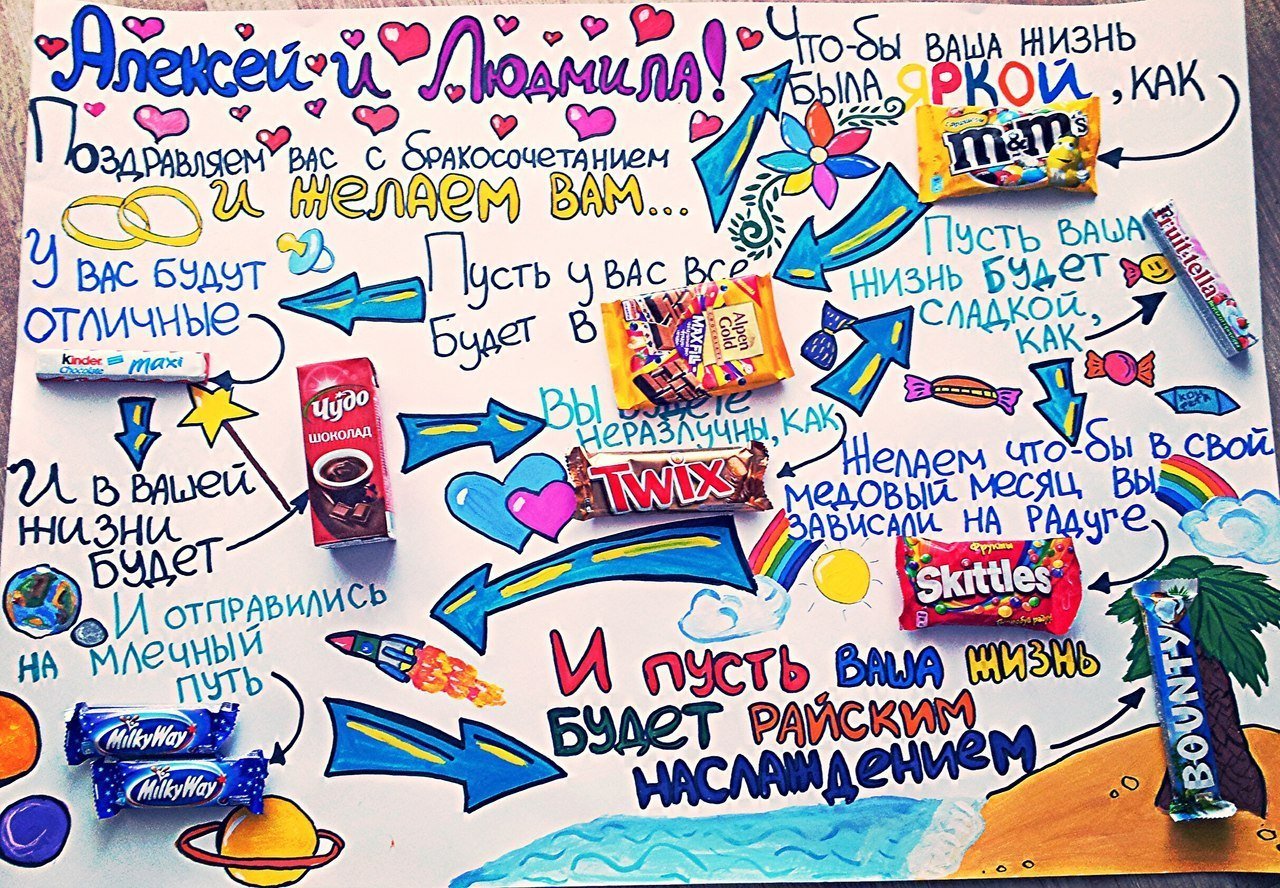 Алексей и Людмила!
Поздравляем вас с бракосочетанием
и желаем вам...
Что-бы ваша жизнь
была яркой, как
m&m's
Пусть у вас все
будет в
Alpen Gold
MAX FUN
У вас будут
отличные
kinder
Chocolate
maxi
И в вашей
жизни
будет
Чудо
шоколад
Вы будете
неразлучны, как
TWIX
Пусть ваша
жизнь будет
сладкой,
как
Fruit-tella
Желаем что-бы в свой
медовый месяц вы
зависали на радуге
Фрукты
Skittles
И отправились
на млечный
путь
MilkyWay
MilkyWay
И пусть ваша жизнь
будет райским
наслаждением
BOUNTY